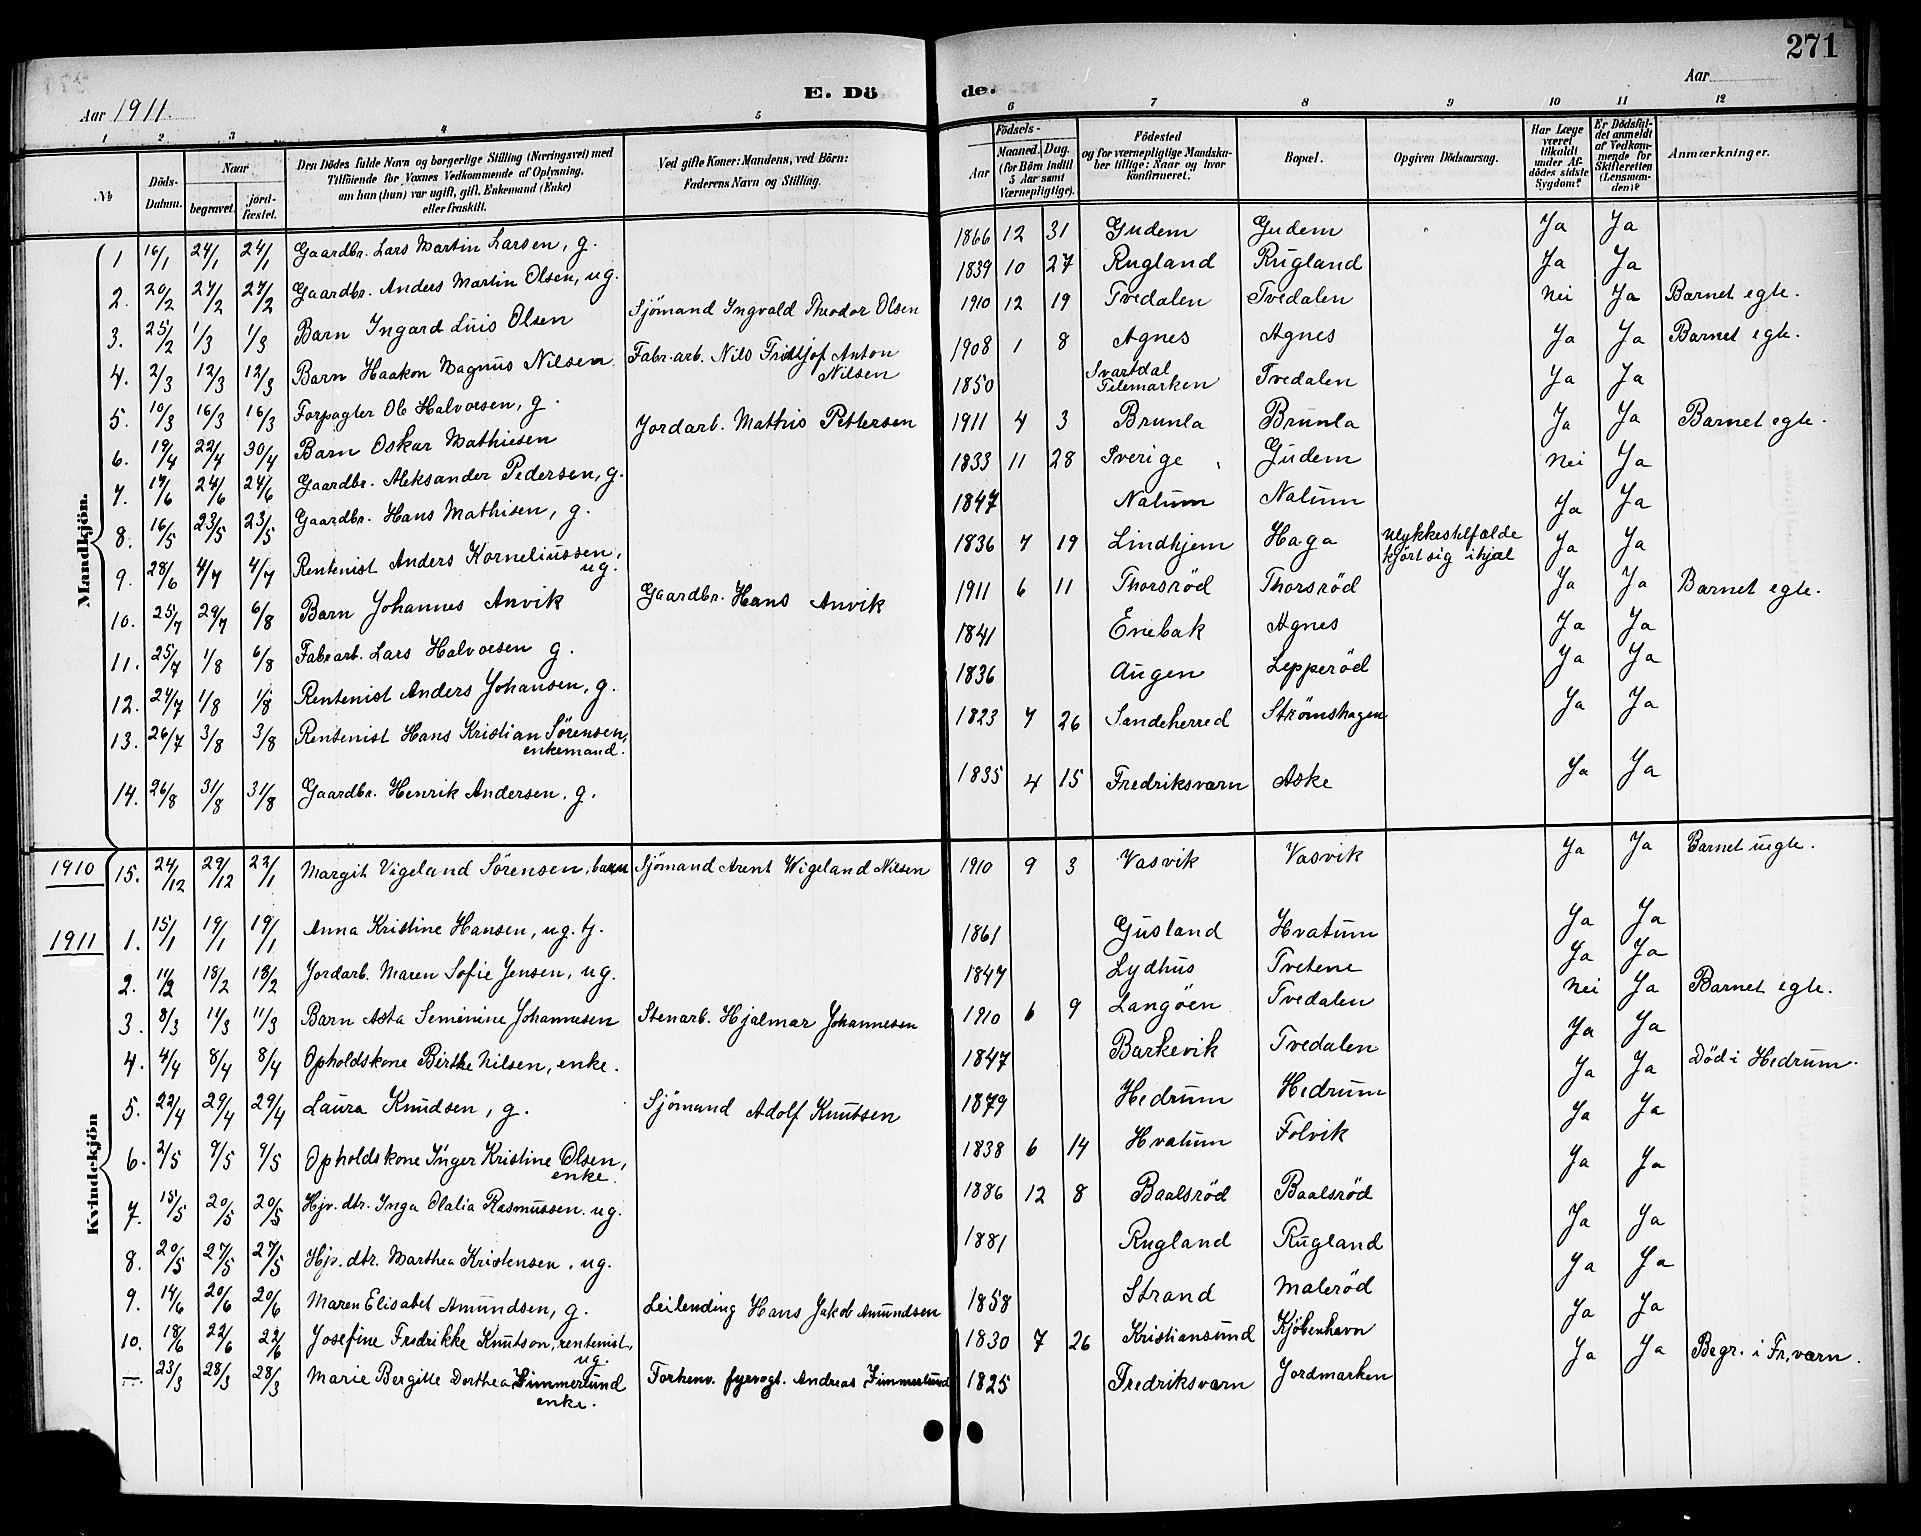 271
Aar 1911.
E. Dö
de.
Aar
1 2 3 4 5 6 7 8 9 10 11 12
№
Döds-Datum.
Naar
begravet.
jord-fæstet.
Den Dödes fulde Navn og borgerlige Stilling (Næringsvei) med
Tilföiende for Voxnes Vedkommende af Oplysning,
om han (hun) var ugift, gift, Enkemand (Enke)
eller fraskilt.
Ved gifte Koner: Mandens, ved Börn:
Faderens Navn og Stilling.
Födsels-
Aar
Maaned. Dag.
(for Börn indtil
5 Aar samt
Værnepligtige).
Födested
og for værnepligtige Mandska-
ber tillige: Naar og hvor
konfirmeret.
Bopæl.
Opgiven Dödsaarsag.
Har Læge
været
tilkaldt
under Af-
dödes sidste
Sygdom?
Er Dödsfal-
det anmeldt
af Vedkom-
mende for
Skifteretten
(Lensman-
den)?
Anmærkninger.
Mandkjön.
1 16/1 24/1 24/1 Gaardbr. Lars Martin Larsen, g. 1866 12 31 Gudem Gudem Ja Ja
2. 20/2 27/2 27/2 Gaardbr. Anders Martin Olsen, ug. 1839 10 27 Rugland Rugland Ja Ja
3. 25/2 1/3 1/3 Barn Ingard Luis Olsen Sjömand Ingvald Theodor Olsen 1910 12 19 Tvedalen Tvedalen Nei Ja Barnet egte.
4. 2/3 12/3 12/3 Barn Haakon Magnus Nilsen Fabr.arb. Nils Fridtjof Anton Nilsen 1908 1 8 Agnes Agnes Ja Ja Barnet egte.
5. 10/3 16/3 16/3 Forpagter Ole Halvorsen, g. 1850 Svartdal Telemarken Tvedalen Ja Ja
6. 19/4 22/4 30/4 Barn Oskar Mathiesen Jordarb. Mathis Pettersen 1911 4 3 Brunla Brunla Ja Ja Barnet egte.
7. 17/6 24/6 24/6 Gaardbr. Aleksander Pedersen, g. 1833 11 28 Sverige Gudem Nei Ja
8. 16/5 23/5 23/5 Gaardbr. Hans Mathisen, g. 1847 Nalum Nalum Ja Ja
9. 28/6 4/7 4/7 Rentenist Anders Korneliussen, ug. 1836 7 19 Lindhjem Haga Ulykkestilfælde kjørt sig ihjæl Ja Ja
10. 25/7 29/7 6/8 Barn Johannes Anvik Gaardbr. Hans Anvik 1911 6 11 Thorsröd Thorsröd Ja Ja Barnet egte.
11. 25/7 1/8 6/8 Fabr.arb. Lars Halvorsen g. 1841 Enebak Agnes Ja Ja
12. 27/7 1/8 1/8 Rentenist Anders Johansen, g. 1836 Augen Lepperöd Ja Ja
13. 26/7 3/8 3/8 Rentenist Hans Kristian Sörensen, enkemand. 1823 7 26 Sandeherred Strømshagen Ja Ja
14. 26/8 31/8 31/8 Gaardbr. Henrik Andersen. g. 1835 4 15 Fredriksværn Aske Ja Ja
1910 15. 24/12 29/12 22/1 Margit Vigeland Sörensen, barn Sjömand Arent Wigeland Nilsen 1910 9 3 Vasvik Vasvik Ja Ja Barnet uegte.
Kvindekjön
1911 1. 15/1 19/1 19/1 Anna Kristine Hansen, ug. tj. 1861 Gusland Hvatum Ja Ja
2. 11/2 18/2 18/2 Jordarb. Maren Sofie Jensen, ug. 1847 Lydhus Tvetene Ja Ja
3. 8/3 11/3 11/3 Barn Asta Seminine Johannesen Stenarb. Hjalmar Johannesen 1910 6 9 Langöen Tvedalen Nei Ja Barnet egte.
4. 4/4 8/4 8/4 Opholdskone Birthe Nilsen, enke. 1847 Barkevik Tvedalen Ja Ja
5. 22/4 29/4 29/4 Laura Knudsen, g. Sjömand Adolf Knutsen 1879 Hedrum Hedrum Ja Ja Död i Hedrum.
6. 2/5 9/5 9/5 Opholdskone Inger Kristine Olsen, enke. 1838 6 14 Hvatum Folvik Ja Ja
7. 15/5 20/5 20/5 Hjv. dtr. Inga Olalia Rasmussen. ug. 1886 12 8 Baalsröd Baalsröd Ja Ja
8. 20/5 27/5 27/5 Hjp. dtr. Marthea Kristensen, ug. 1881 Rugland Rugland Ja Ja
9. 14/6 20/6 20/6 Maren Elisabet Amundsen, g. Leilending Hans Jakob Amundsen 1858 Strand Maleröd Ja Ja
10. 18/6 22/6 22/6 Josefine Fredrikke Knutson, rentenist, ug. 1830 7 26 Kristiansund Kjöbenhavn Ja Ja
— 23/3 28/3 28/3 Marie Bergitte Dorthea Zimmerlund enke. Forhenv. fyrvogt. Andreas Zimmerlund 1825 Fredriksværn Jordmarken Ja Ja Begr. i Fr.værn.